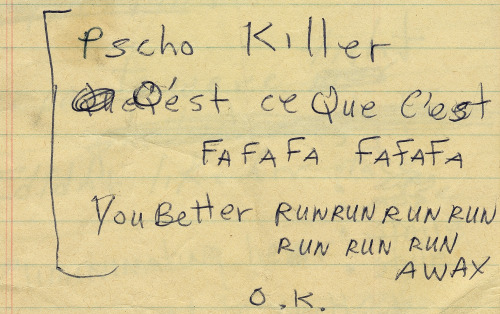 Pscho Killer
Q'ést ce Que C'est
FA FA FA FAFAFA
You Better RUN RUN RUN RUN
RUN RUN RUN
AWAY
O.K.